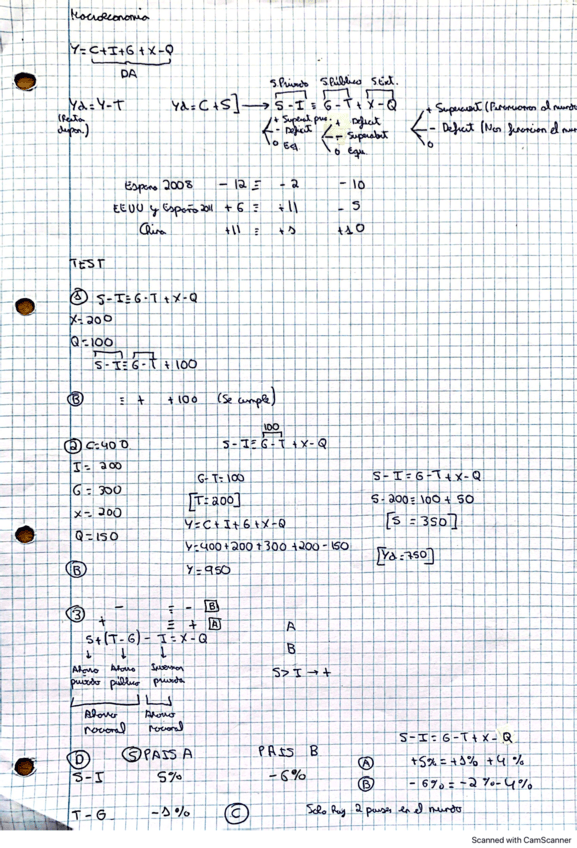 Macroeconomía
Y = C+I+G+X-Q
DA
S.Privado S.Público S.Ext.
Yd = Y-T Yd = C+S] → S-I ≡ G-T + X-Q
(Renta dispon.)
+ Superávit priv. + Déficit + Superávit (Financiamos al mundo)
- Déficit - Superávit - Déficit (Nos financian el mun
0 Eq. 0 Equ. 0
España 2008 -12 ≡ -2 -10
EEUU y España 2011 +6 ≡ +11 -5
China +11 ≡ +1 +10
TEST
① S-I ≡ G-T + X-Q
X=200
Q=100
S-I ≡ G-T +100
Ⓑ ≡ + +100 (Se cumple)
② C=400 S-I ≡ G-T + X-Q
100
I = 200
G = 300
X = 200
Q = 150
Ⓑ
G-T = 100
[T=200]
Y = C+I+G+X-Q
Y = 400+200+300+200-150
Y = 950
S-I = G-T + X-Q
S-200 = 100 + 50
[S = 350]
[Yd = 750]
③ - ≡ - B
+ ≡ + A
S+(T-G)-I = X-Q
Ahorro privado Ahorro público Inversión privada
Ahorro nacional Ahorro nacional
A
B
S > I → +
Ⓓ ⑤ PAIS A PAIS B
S-I 5% -6%
T-G -1% Ⓒ Solo hay 2 países en el mundo
S-I = G-T + X-Q
Ⓐ +5% = +1% + 4%
Ⓑ -6% = -2% -4%
Scanned with CamScanner